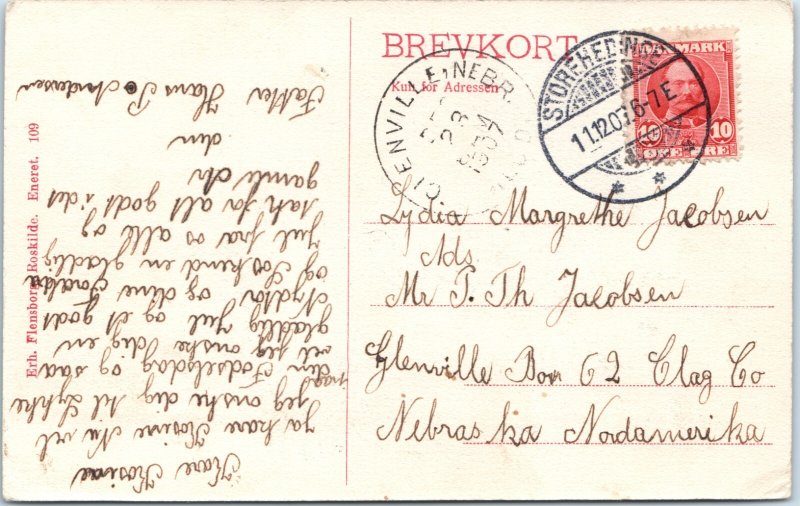 BREVKORT
Kun for Adressen
DANMARK
10 ØRE 10
STOREHEDINGE
11.12.07. 6-7 E
GLENVILLE, NEBR.
1907
Lydia Margrethe Jacobsen
Ads
Mr P. Th Jacobsen
Glenville Box 62 Clag Co
Nebraska Nordamerika
Erh. Flensborg, Roskilde. Eneret. 109
Kære Kosine
Ja kære Kosine Nu vil
jeg ønske dig til Lykke
paa
din Fødselsdag og saa
vil jeg ønske dig en
glædlig Jul og et godt
Nydtor og dine Forældre
og Søskend en glædlig
Jul fra os alle og
tak for alt godt i det
gamle
din
Fætter Hans P. Andersen